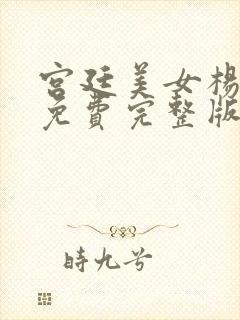 宫廷美女楊
免費完整版
時九兮